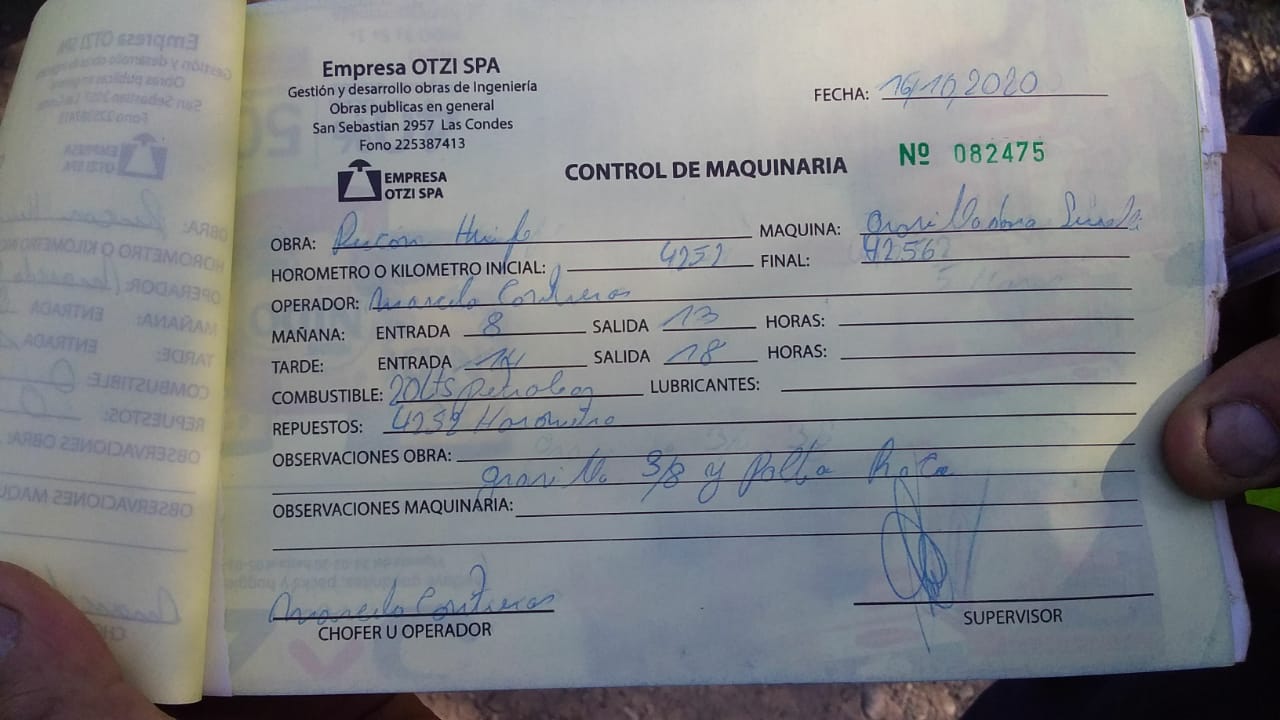 Empresa OTZI SPA
Gestión y desarrollo obras de Ingeniería
Obras publicas en general
San Sebastian 2957 Las Condes
Fono 225387413
EMPRESA
OTZI SPA
FECHA: 16/10/2020
CONTROL DE MAQUINARIA
Nº 082475
OBRA: MAQUINA:
HOROMETRO O KILOMETRO INICIAL: 4252 FINAL: 4256
OPERADOR: Marcelo Contreras
MAÑANA: ENTRADA 8 SALIDA 13 HORAS:
TARDE: ENTRADA 14 SALIDA 18 HORAS:
COMBUSTIBLE: 20Lts Petroleo LUBRICANTES:
REPUESTOS: Horometro
OBSERVACIONES OBRA:
gravilla 3/8 y
OBSERVACIONES MAQUINARIA:
Marcelo Contreras
CHOFER U OPERADOR
SUPERVISOR